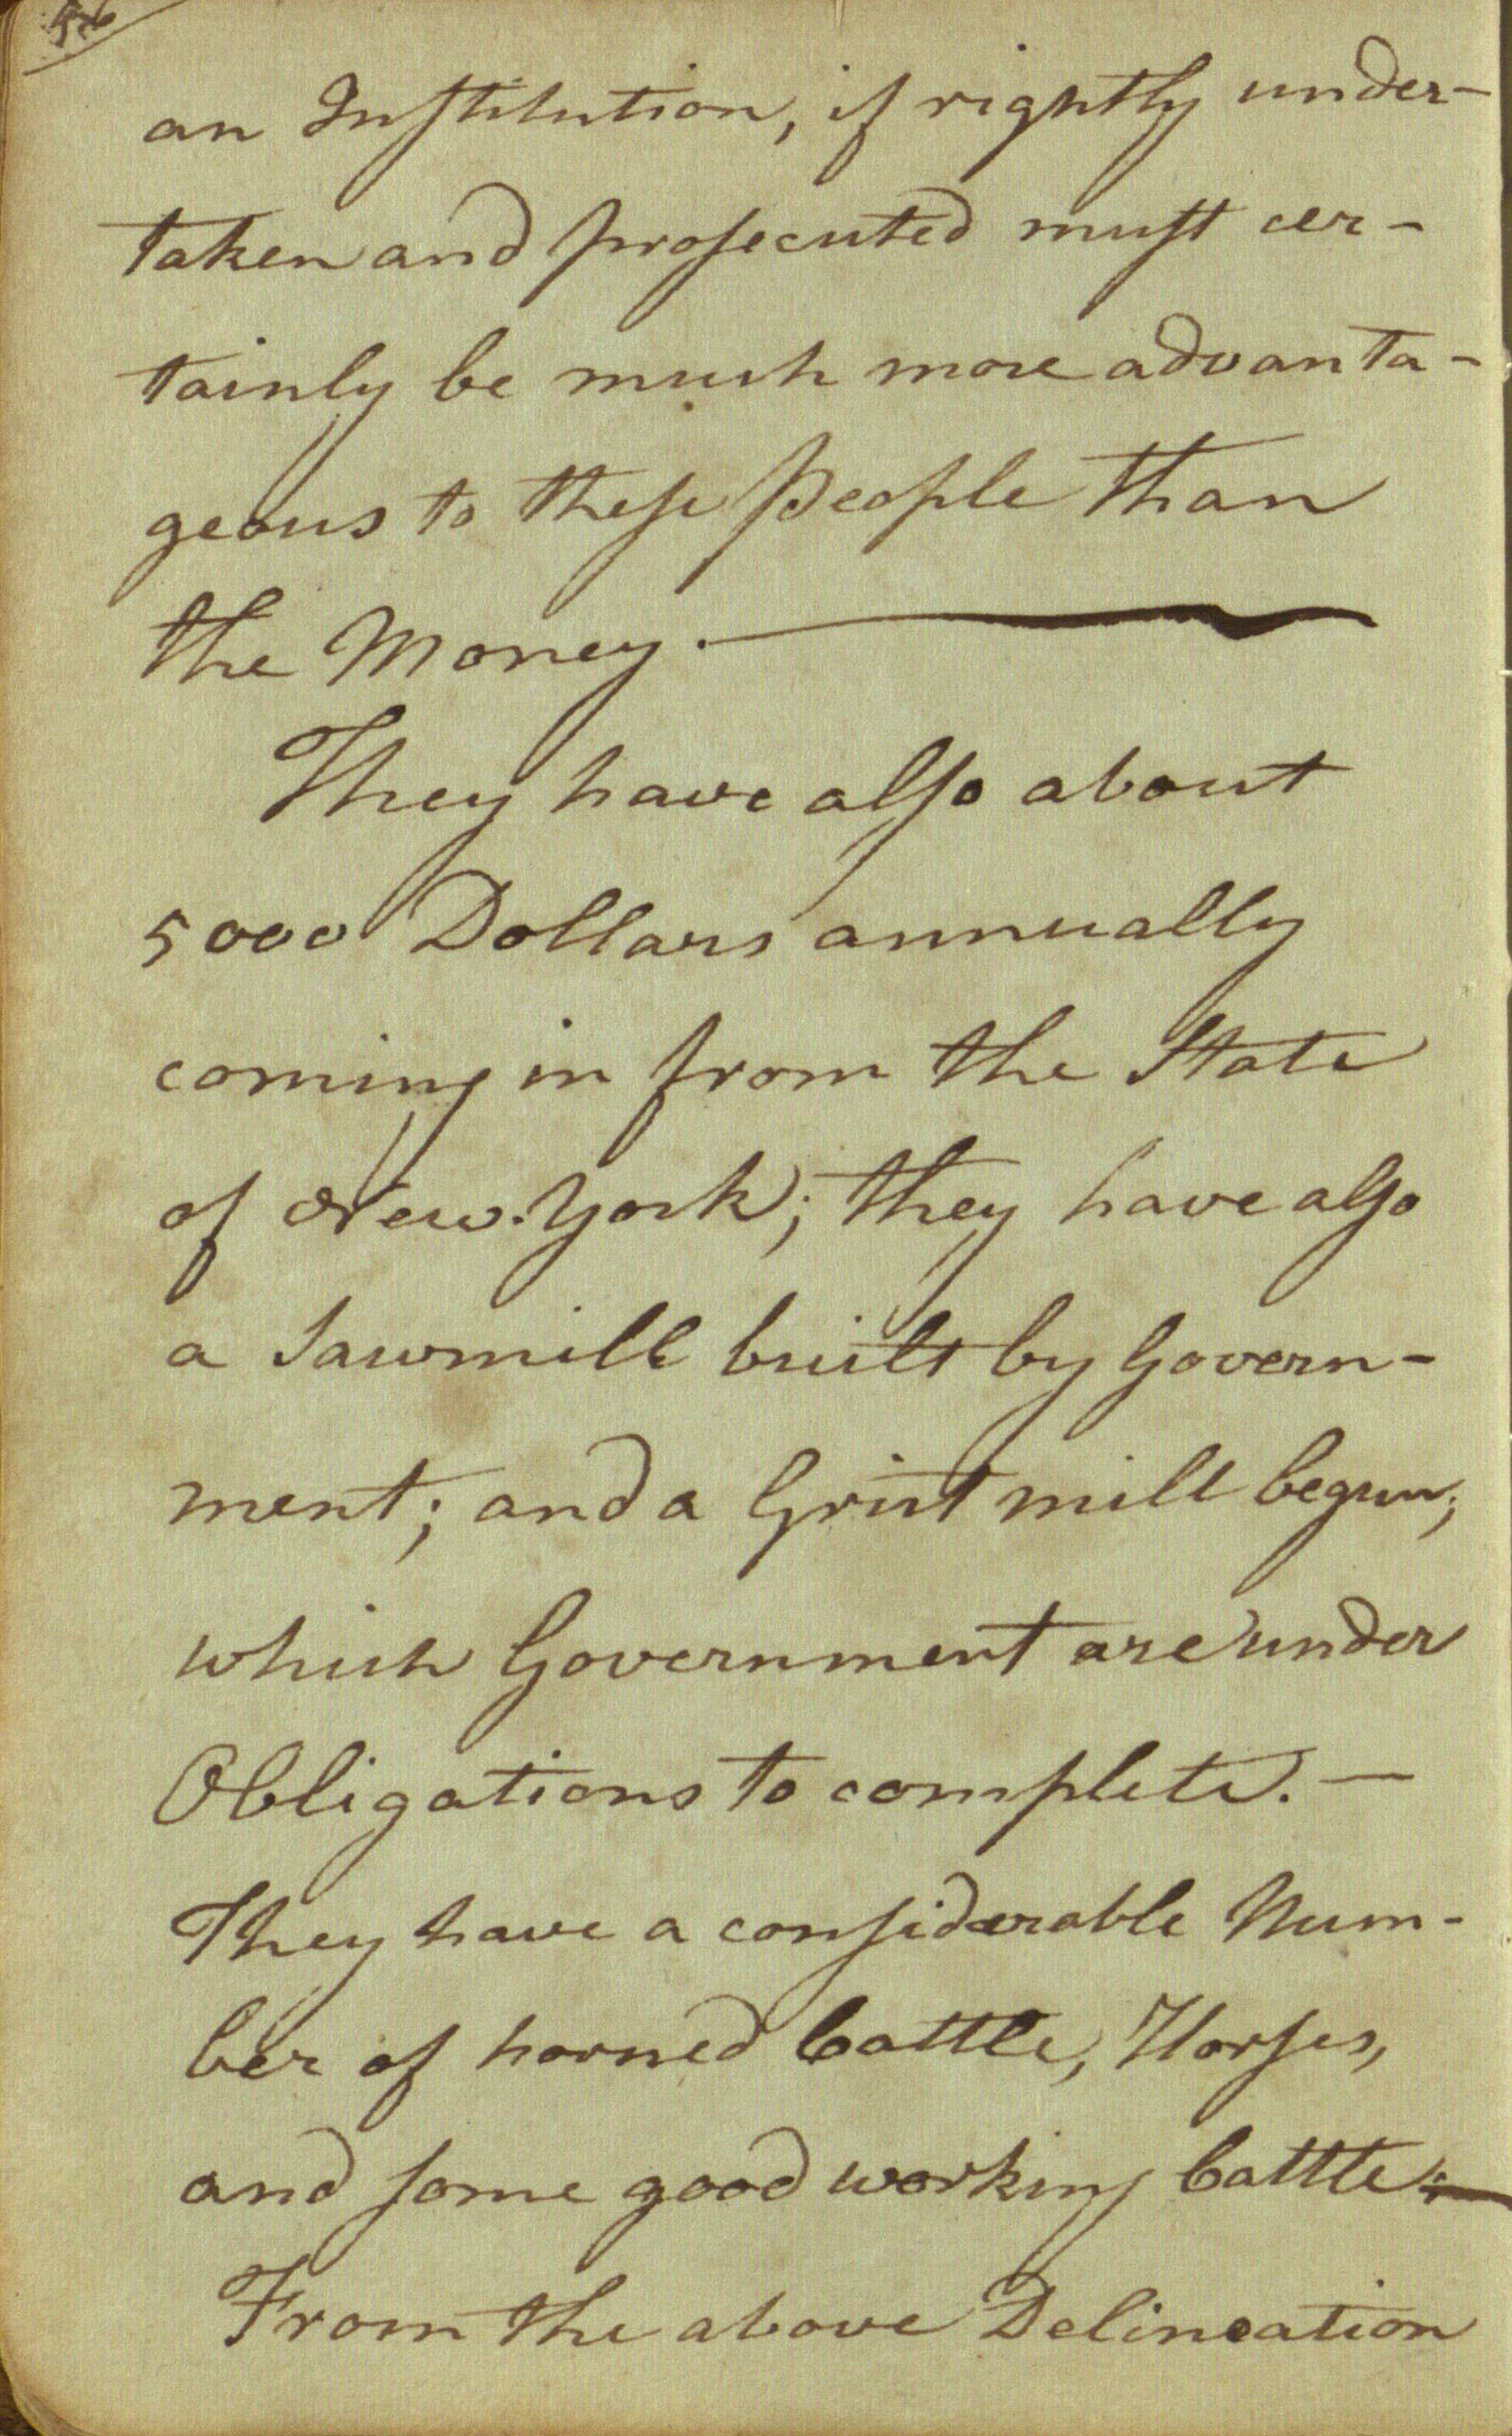 an Institution, if rightly under-
taken and prosecuted must cer-
tainly be much more advanta-
geous to these People than
the Money.
They have also about
5000 Dollars annually
coming in from the State
of New-York; they have also
a Sawmill built by Govern-
ment; and a Grist mill begun;
which Government are under
Obligations to complete. —
They have a considerable Num-
ber of horned Cattle, Horses,
and some good working Cattle: —
From the above Delineation